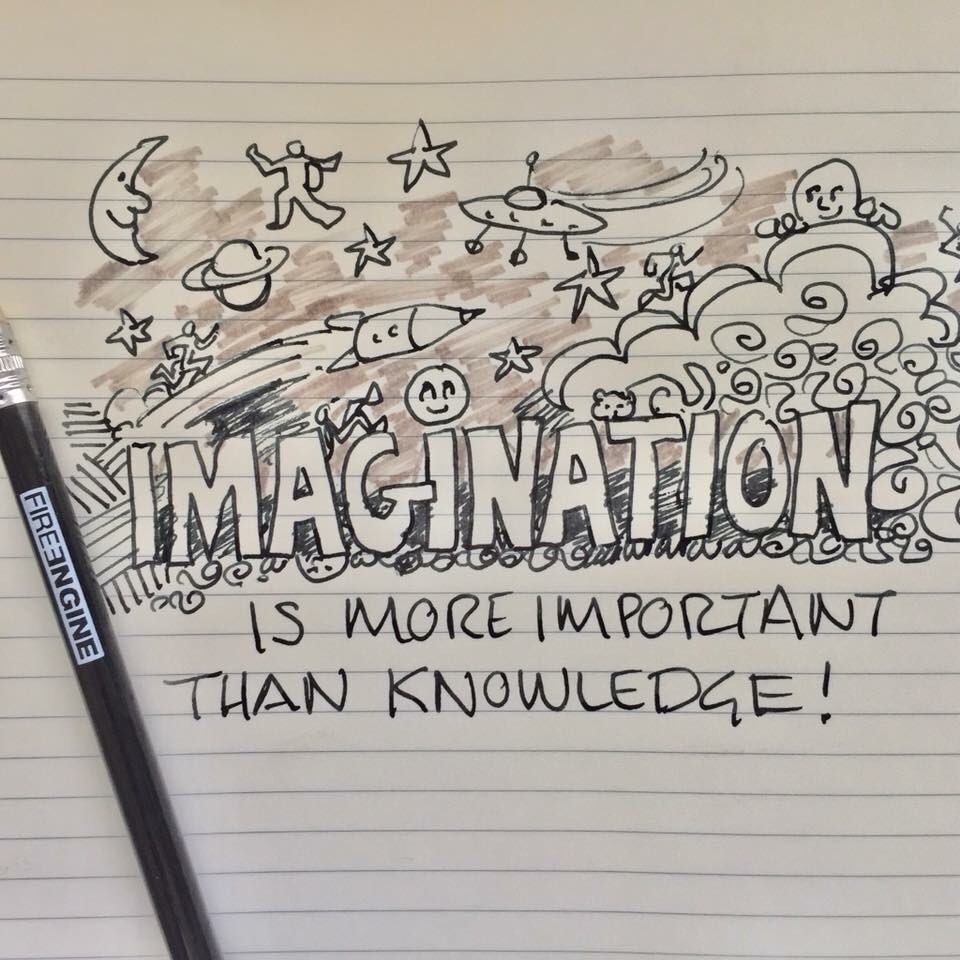 IMAGINATION
IS MORE IMPORTANT
THAN KNOWLEDGE!
FIREENGINE